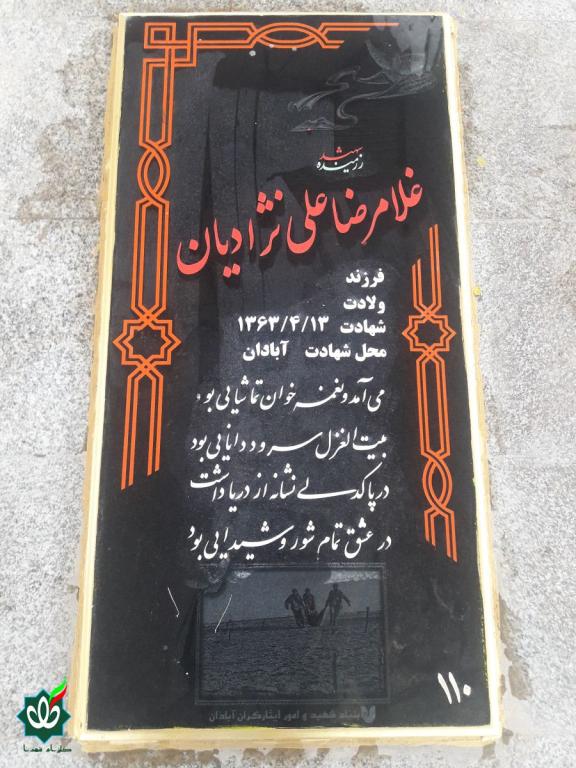 شهید
رزمنده
غلامرضا علی نژادیان
فرزند
ولادت
شهادت ۱۳۶۳/۴/۱۳
محل شهادت آبادان
می آمد و نغمه خوان تماشایی بود
بیت الغزل سرود دانایی بود
در پاکدلی نشانه از دریا داشت
در عشق تمام شور و شیدایی بود
۱۱۰
بنیاد شهید و امور ایثارگران آبادان